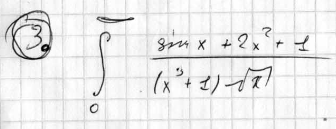 3.
∫
0
sin x + 2x² + 1
(x³ + 1) √x